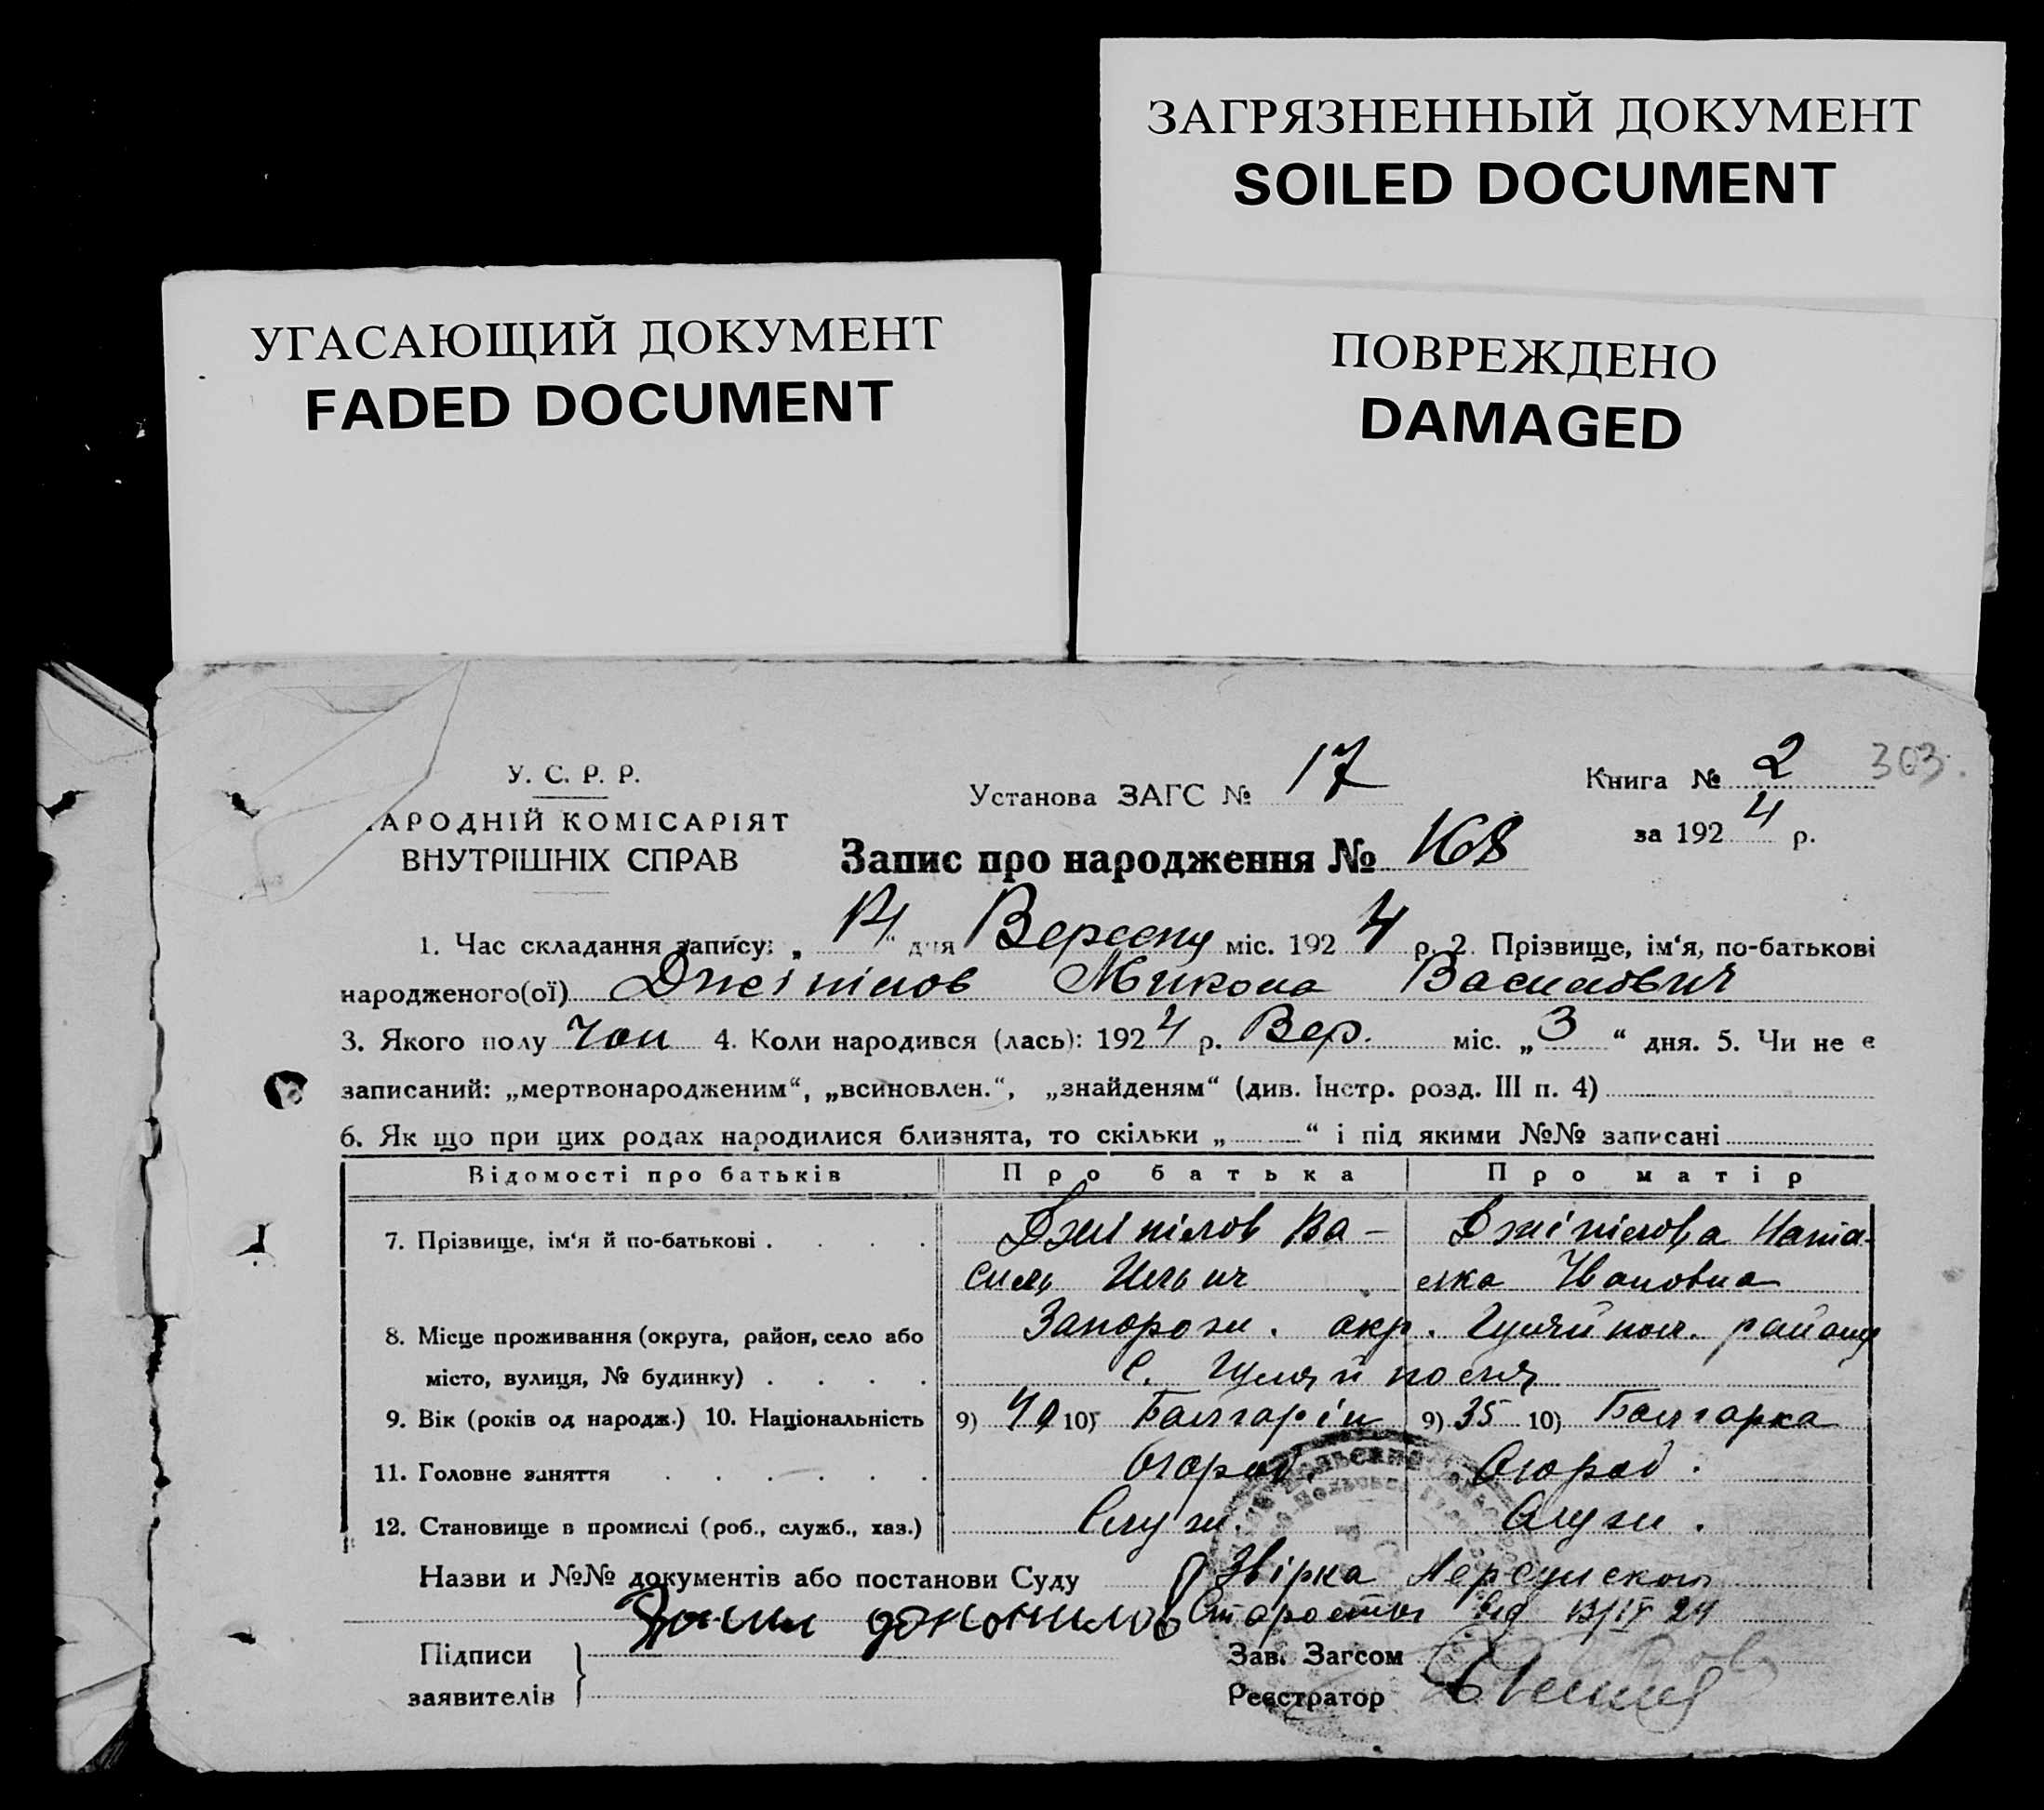 ЗАГРЯЗНЕННЫЙ ДОКУМЕНТ
SOILED DOCUMENT
УГАСАЮЩИЙ ДОКУМЕНТ
FADED DOCUMENT
ПОВРЕЖДЕНО
DAMAGED
У. С. Р. Р.
АРОДНІЙ КОМІСАРІЯТ
ВНУТРІШНІХ СПРАВ
Установа ЗАГС № 17
Книга № 2 303.
за 1924 р.
Запис про народження № 168
1. Час складання запису: „ “ дня Вересну міс. 1924 р. 2. Прізвище, ім‘я, по-батькові
народженого(ої) Джінілов Микола Василович
3. Якого полу чол 4. Коли народився (лась): 1924 р. Вер. міс. „3“ дня. 5. Чи не є
записаний: „мертвонародженим“, „всиновлен.“, „знайденям“ (див. Інстр. розд. III п. 4)
6. Як що при цих родах народилися близнята, то скільки „ “ і під якими №№ записані
Відомості про батьків Про батька Про матір
7. Прізвище, ім‘я й по-батькові . . . . Джінілов Ва- Джінілова Ната-
силь Ильич лка Ивановна
8. Місце проживання (округа, район, село або Запорож. окр. Гуляйпол. району
місто, вулиця, № будинку) . . . . с. Гуляй поля
9. Вік (років од народж.) 10. Національність 9) 40 10) Балгарін 9) 35 10) Балгарка
11. Головне заняття . . . . . . Огород. Огород.
12. Становище в промислі (роб., служб., хаз.) Служ. Служ.
Назви и №№ документів або постанови Суду Звірка
Старости від 24
Підписи
заявителів
Зав. Загсом
Реєстратор